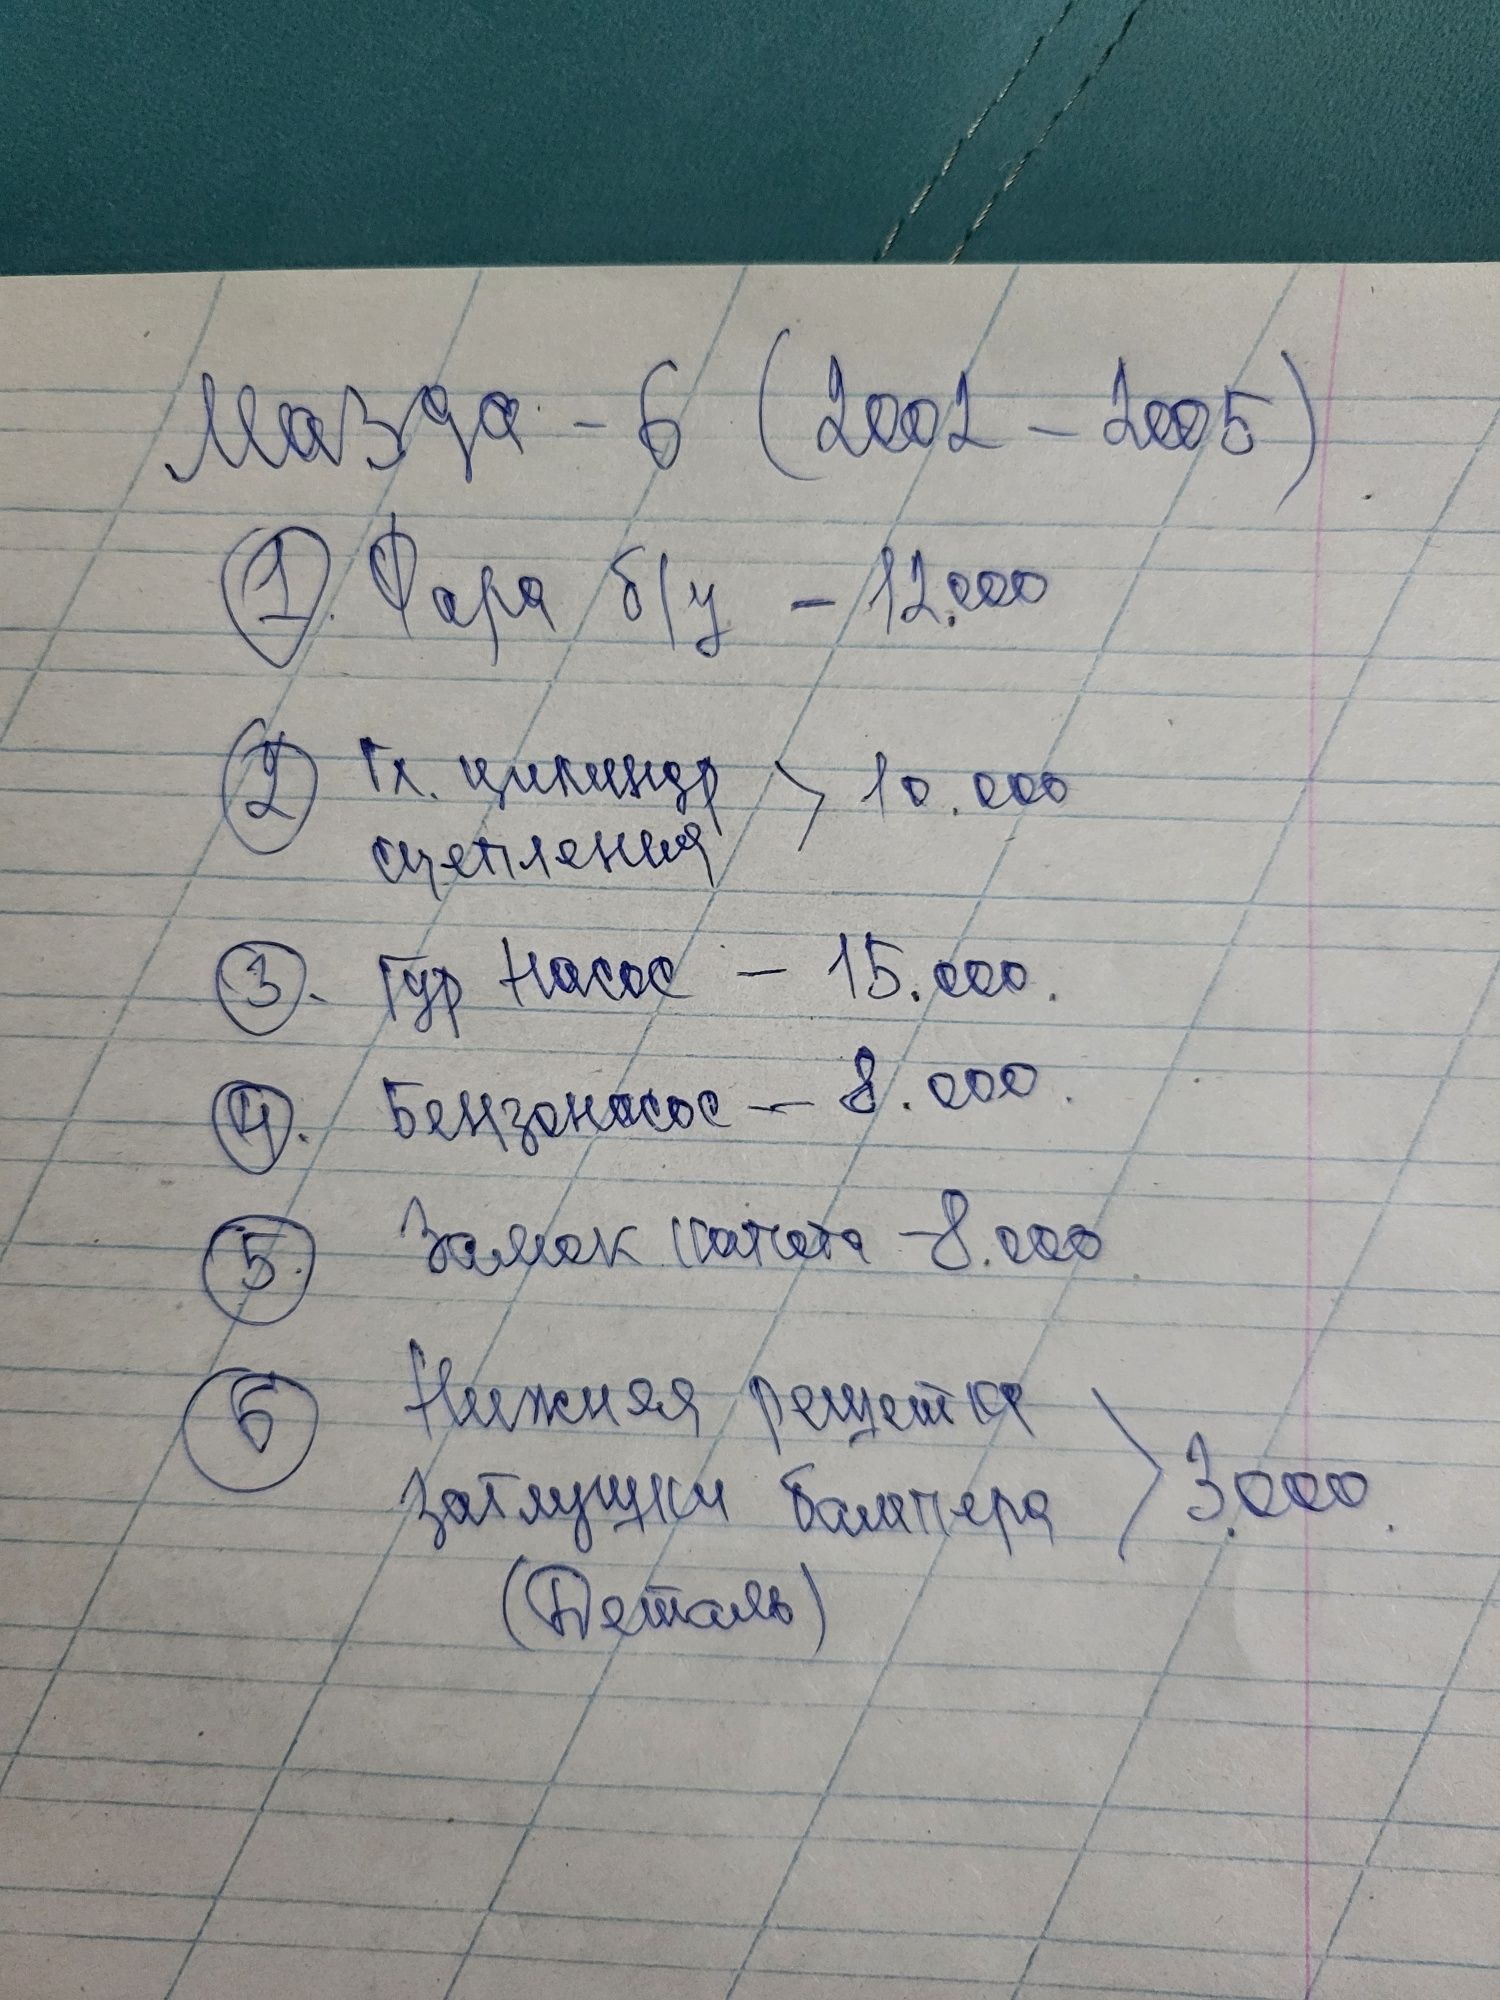 Мазда - 6 (2002 - 2005)
1. Фара б/у - 12.000
2 Гл. цилиндр > 10.000
сцепления
3. Гур Насос - 15.000.
4. Бензонасос - 8.000.
5. Замок капота - 8.000
6 Нижняя решетка
заглушки бампера > 3.000.
(Деталь)